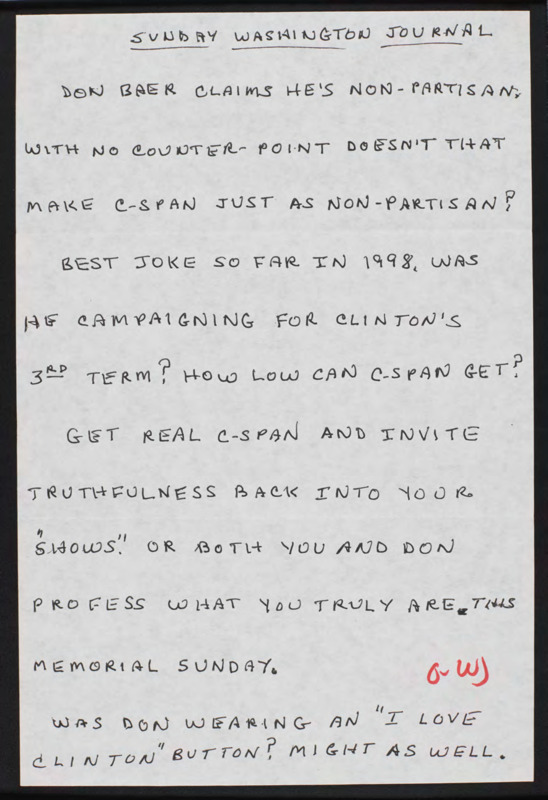 SUNDAY WASHINGTON JOURNAL
DON BAER CLAIMS HE'S NON-PARTISAN,
WITH NO COUNTER-POINT DOESN'T THAT
MAKE C-SPAN JUST AS NON-PARTISAN?
BEST JOKE SO FAR IN 1998, WAS
HE CAMPAIGNING FOR CLINTON'S
3RD TERM? HOW LOW CAN C-SPAN GET?
GET REAL C-SPAN AND INVITE
TRUTHFULNESS BACK INTO YOUR
"SHOWS". OR BOTH YOU AND DON
PROFESS WHAT YOU TRULY ARE. THIS
MEMORIAL SUNDAY.
WAS DON WEARING AN "I LOVE
CLINTON" BUTTON? MIGHT AS WELL.